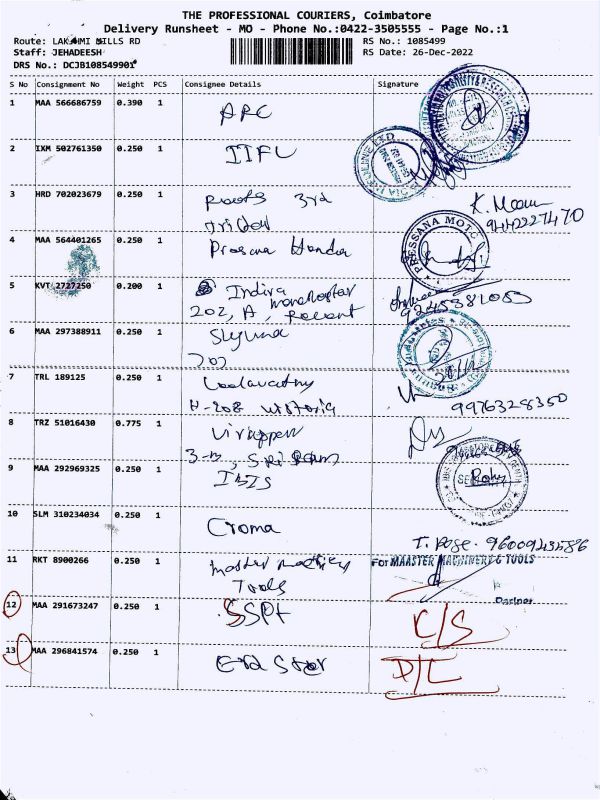 THE PROFESSIONAL COURIERS, Coimbatore
Delivery Runsheet - MO - Phone No.:0422-3505555 - Page No.:1
Route: LAKSHMI MILLS RD RS No.: 1085499
Staff: JEHADEESH RS Date: 26-Dec-2022
DRS No.: DCJB108549901
S No Consignment No Weight PCS Consignee Details Signature
1 MAA 566686759 0.390 1 APC
2 IXM 502761350 0.250 1 IIFL
3 HRD 702023679 0.250 1 Roots 3rd
K.
9442227470
4 MAA 564401265 0.250 1 Prosana Honda
PRESSANA MOTO
5 KVT 2727250 0.200 1 Indira
202, A,
9245381083
6 MAA 297388911 0.250 1
202
7 TRL 189125 0.250 1
H-208 Victoria
9976328350
8 TRZ 51016430 0.775 1
3-B, Sri Ram
9 MAA 292969325 0.250 1
10 SLM 310234034 0.250 1 Croma
T. 9600943586
11 RKT 8900266 0.250 1 Master
Tools
For MAASTER MACHINERY & TOOLS
Partner
12 MAA 291673247 0.250 1 SSPF
C/S
13 MAA 296841574 0.250 1 End Star
D/L